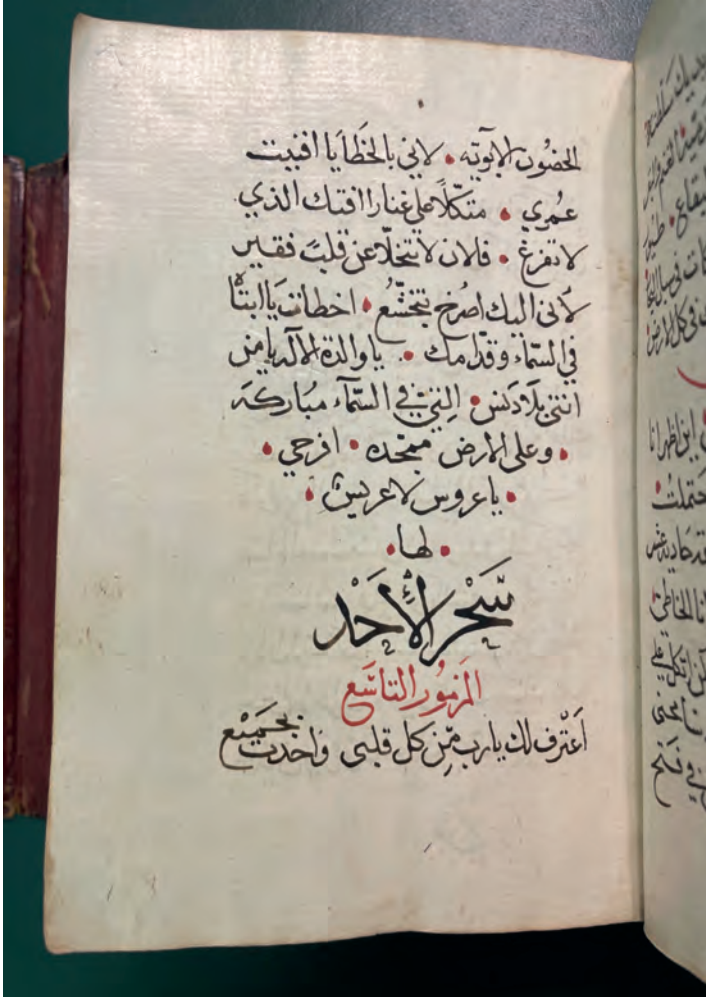 الحضون الابويه • لاني بالخطايا افنيت
عمري • متكلاً على غنا رافتك الذي
لا تفرغ • فلان لا تتخلا عن قلبٍ فقير
لأني اليك اصرخ بتخشع • اخطات يا ابتاه
في السماء وقدامك • يا والدة الاله يا من
انتي بلا دنس • التي في السمآء مباركه
• وعلى الارض ممجده • افرحي •
• يا عروس لا عريس •
• لها •
سَحَر الأَحَدْ
المزمور التاسع
اعترف لك يا رب من كل قلبي واحدث بجميع